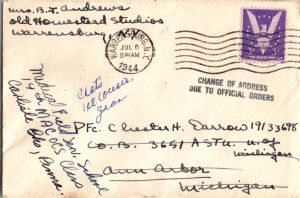 Mrs. B. T. Andrews
Old Homestead Studios
Warrensburg N.Y.
WARRENSBURG, N.Y.
JUL 6
8 30 AM
1944
CHANGE OF ADDRESS
DUE TO OFFICIAL ORDERS
Medical Field Ser. School
MAC OCS Class
Carlisle Penna.
Pfc. Chester H. Darrow 19133698
Co. B. 3651 A S T U. U. of
Michigan
Ann Arbor
Michigan